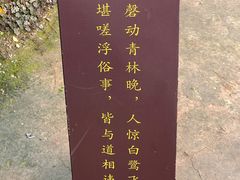 磬动青林晚，人惊白鹭飞
堪嗟浮俗事，皆与道相违